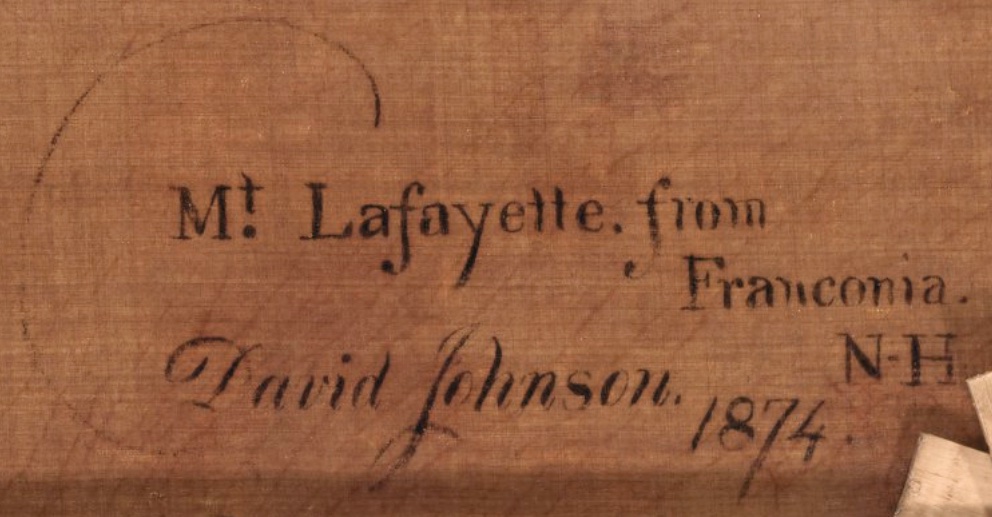 Mt. Lafayette. from
Franconia.
N-H
David Johnson. 1874.